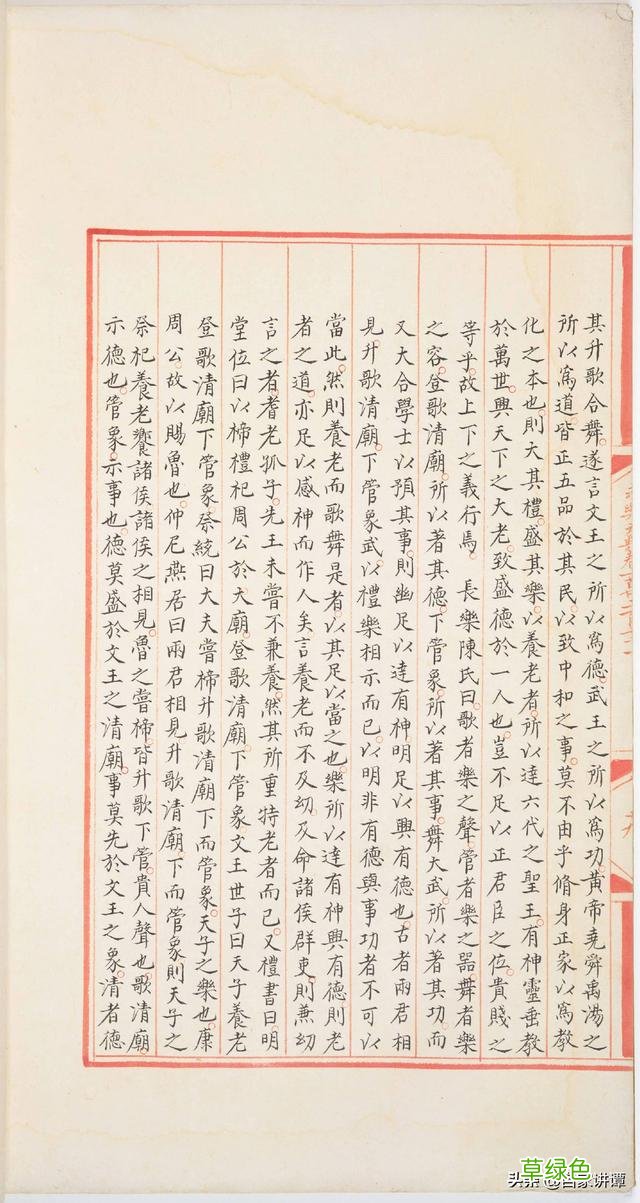 其升歌合舞遂言文王之所以爲德武王之所以爲功黄帝堯舜禹湯之
所以爲道皆正五品於其民以致中和之事莫不由乎脩身正家以爲教
化之本也則大其禮盛其樂以養老者所以達六代之聖王有神靈垂教
於萬世興天下之大老致盛德於一人也豈不足以正君臣之位貴賤之
等乎故上下之義行焉 長樂陳氏曰歌者樂之聲管者樂之器舞者樂
之容登歌清廟所以著其德下管象所以著其事舞大武所以著其功而
又大合學士以預其事則幽足以達有神明足以興有德也古者兩君相
見升歌清廟下管象武以禮樂相示而已以明非有德與事功者不可以
當此然則養老而歌舞是者以其足以當之也樂所以達有神興有德則老
者之道亦足以感神而作人矣言養老而不及幼及命諸侯群吏則兼幼
言之者耆老孤子先王未嘗不兼養然其所重特老者而已又禮書曰明
堂位曰以禘禮祀周公於大廟登歌清廟下管象文王世子曰天子養老
登歌清廟下管象祭統曰大夫嘗禘升歌清廟下而管象天子之樂也康
周公故以賜魯也仲尼燕居曰兩君相見升歌清廟下而管象則天子之
祭祀養老饗諸侯諸侯之相見魯之嘗禘皆升歌下管貴人聲也歌清廟
示德也管象示事也德莫盛於文王之清廟事莫先於文王之象清者德
头条 @百家讲谭
草绿色